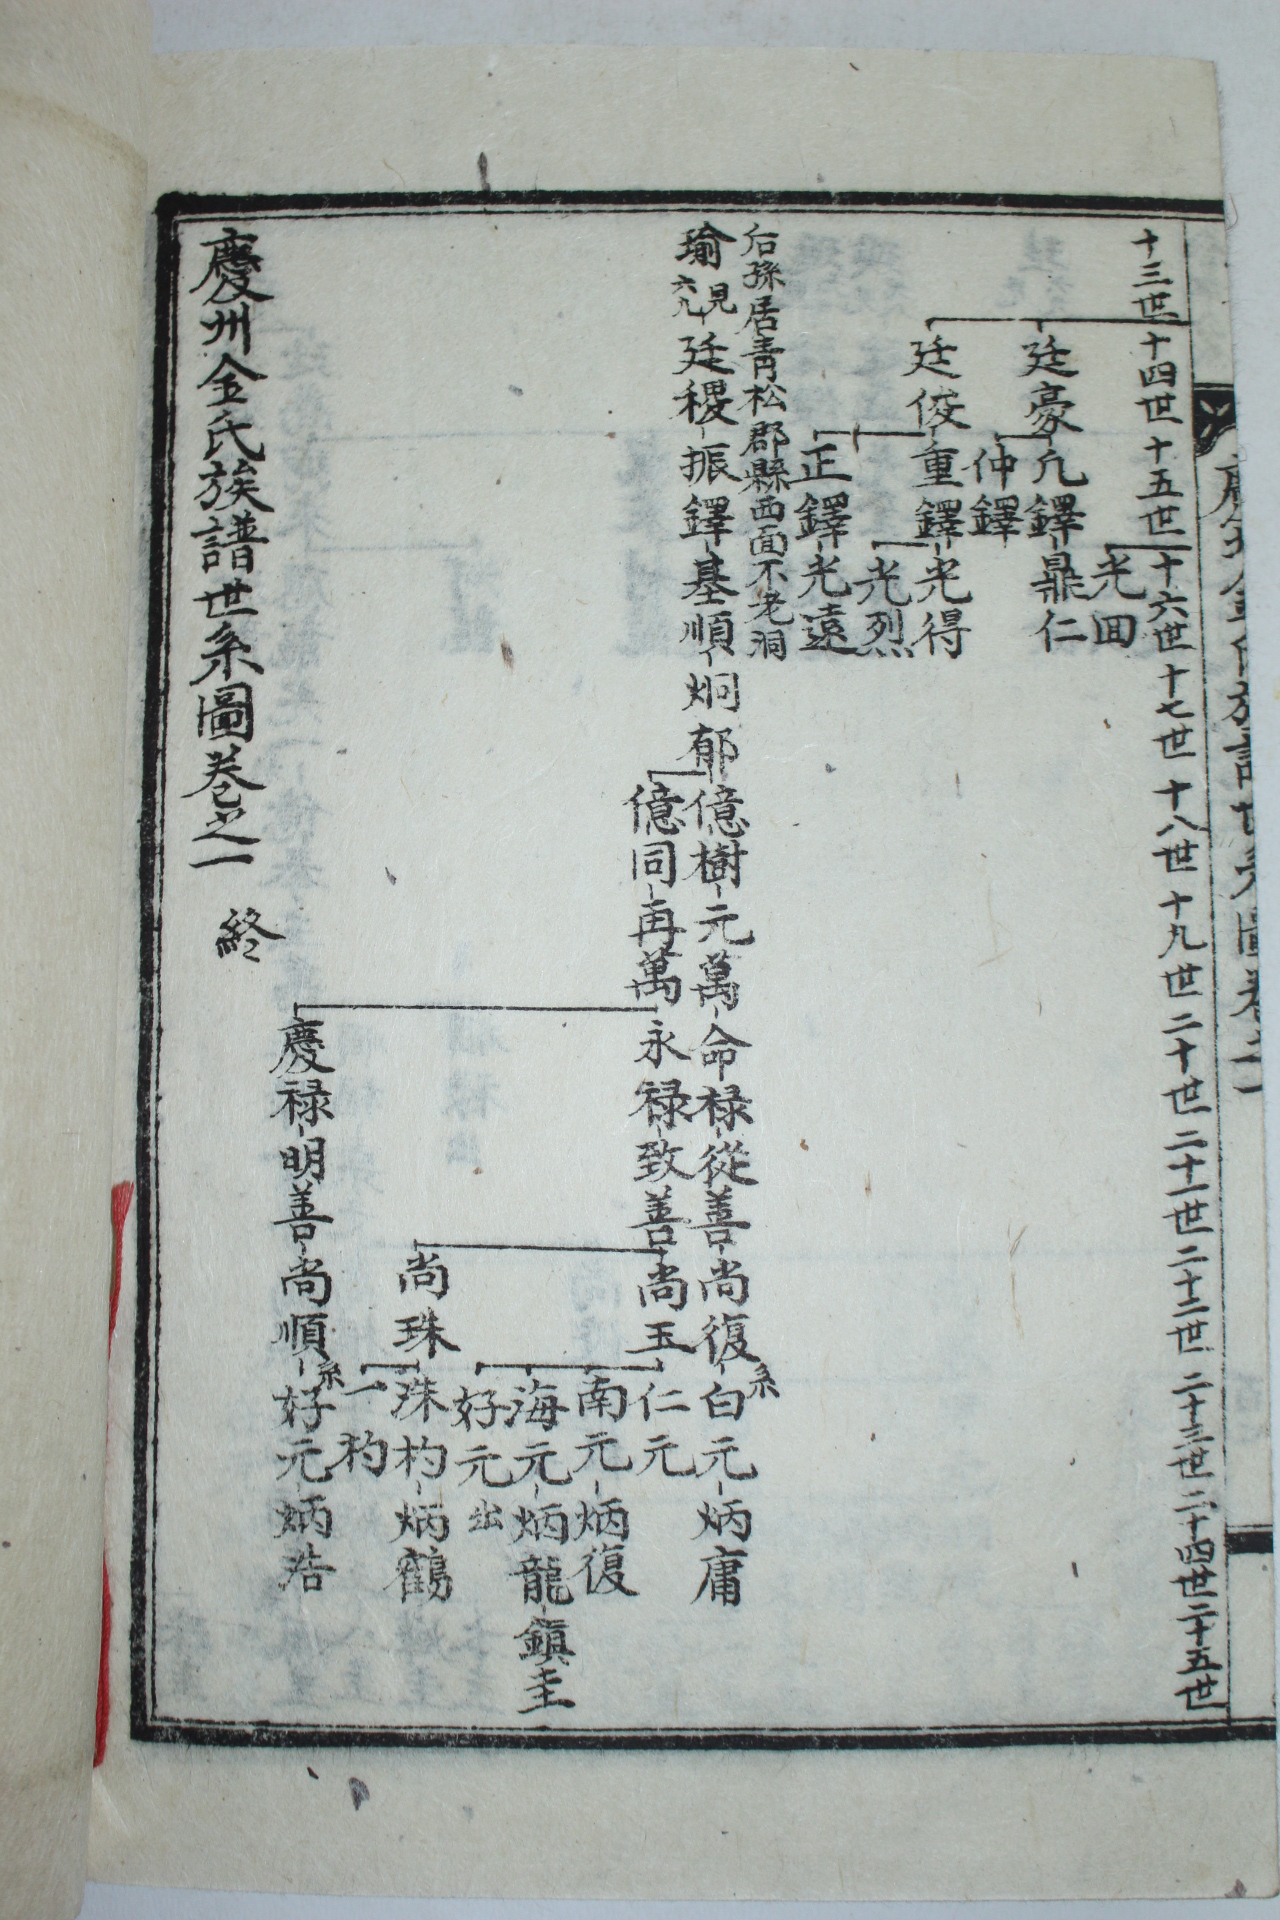 慶州金氏族譜世系圖卷之一
十三世 十四世 十五世 十六世 十七世 十八世 十九世 二十世 二十一世 二十二世 二十三世 二十四世 二十五世
光回
廷豪 九鐸 鼎仁
仲鐸
廷俊 重鐸 光得
光烈
正鐸 光遠
后孫居靑松郡縣西面不老洞
瑜 見六九 廷稷 振鐸 基順 炯郁 億樹 元萬 命祿 從善 尙復 系 白元 炳庸
億同 再萬 永祿 致善 尙玉 仁元
南元 炳復
海元 炳龍 鎭圭
好元 出
尙珠 洙杓 炳鶴
一杓
慶祿 明善 尙順 系 好元 炳浩
慶州金氏族譜世系圖卷之一 終